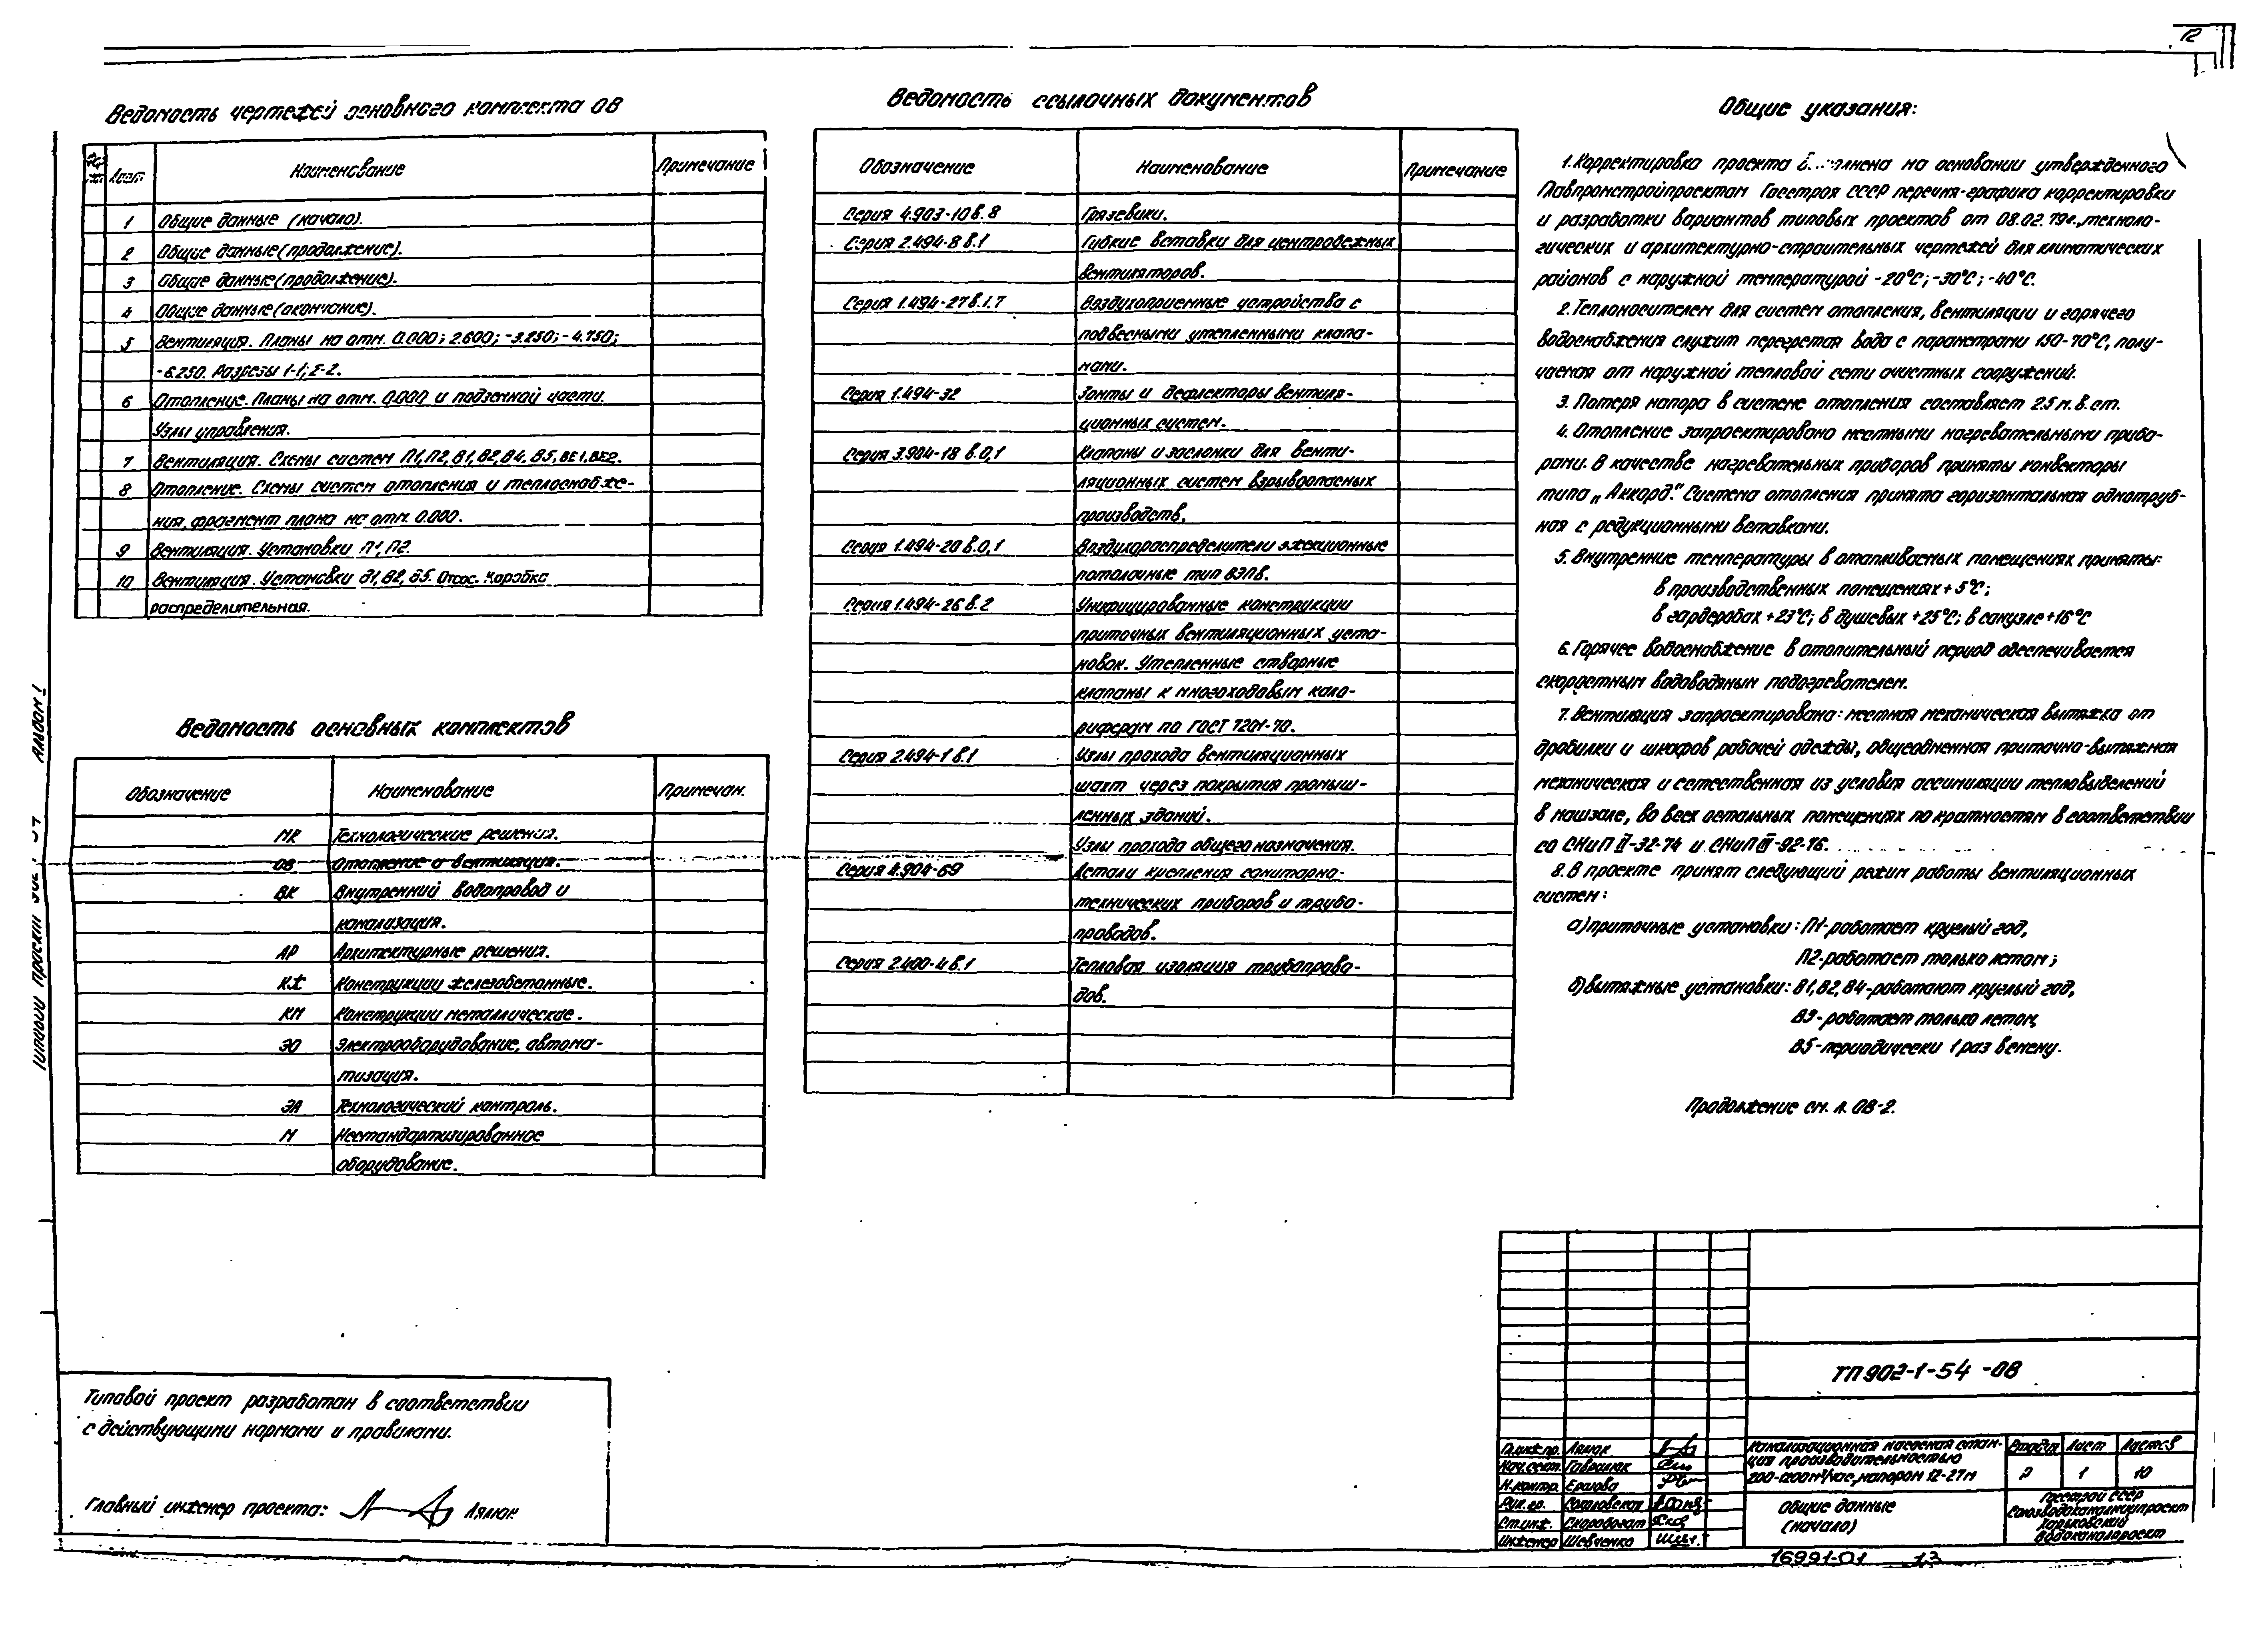 12
Ведомость чертежей основного комплекта ОВ
Лист Наименование Примечание
1 Общие данные (начало).
2 Общие данные (продолжение).
3 Общие данные (продолжение).
4 Общие данные (окончание).
5 Вентиляция. Планы на отм. 0.000; 2.600; -3.250; -4.750;
-6.250. Разрезы 1-1; 2-2.
6 Отопление. Планы на отм. 0.000 и подземной части.
Узлы управления.
7 Вентиляция. Схемы систем П1, П2, В1, В2, В4, В5, ВЕ1, ВЕ2.
8 Отопление. Схемы систем отопления и теплоснабже-
ния, фрагмент плана на отм. 0.000.
9 Вентиляция. Установки П1, П2.
10 Вентиляция. Установки В1, В2, В5. Отсос. Коробка
распределительная.
Ведомость основных комплектов
Обозначение Наименование Примечан.
НК Технологические решения.
ОВ Отопление и вентиляция.
ВК Внутренний водопровод и
канализация.
АР Архитектурные решения.
КЖ Конструкции железобетонные.
КМ Конструкции металлические.
ЭО Электрооборудование, автома-
тизация.
ЭА Технологический контроль.
Н Нестандартизированное
оборудование.
Ведомость ссылочных документов
Обозначение Наименование Примечание
Серия 4.903-10 в.8 Грязевики.
Серия 2.494-8 в.1 Гибкие вставки для центробежных
вентиляторов.
Серия 1.494-27 в.1.7 Воздухоприемные устройства с
подвесными утепленными клапа-
нами.
Серия 1.494-32 Зонты и дефлекторы вентиля-
ционных систем.
Серия 3.904-18 в.0,1 Клапаны и заслонки для венти-
ляционных систем взрывоопасных
производств.
Серия 1.494-20 в.0,1 Воздухораспределители эжекционные
потолочные тип ВЭПВ.
Серия 1.494-26 в.2 Унифицированные конструкции
приточных вентиляционных уста-
новок. Утепленные створные
клапаны к многоходовым кало-
риферам по ГОСТ 7201-70.
Серия 2.494-1 в.1 Узлы прохода вентиляционных
шахт через покрытия промыш-
ленных зданий.
Узлы прохода общего назначения.
Серия 4.904-69 Детали крепления санитарно-
технических приборов и трубо-
проводов.
Серия 2.400-4 в.1 Тепловая изоляция трубопрово-
дов.
Общие указания:
1. Корректировка проекта на основании утвержденного
Главпромстройпроектом Госстроя СССР перечня-графика корректировки
и разработки вариантов типовых проектов от 08.02.79г., техноло-
гических и архитектурно-строительных чертежей для климатических
районов с наружной температурой -20°С; -30°С; -40°С.
2. Теплоносителем для систем отопления, вентиляции и горячего
водоснабжения служит перегретая вода с параметрами 150-70°С, полу-
чаемая от наружной тепловой сети очистных сооружений.
3. Потеря напора в системе отопления составляет 2.5 м. в. ст.
4. Отопление запроектировано местными нагревательными прибо-
рами. В качестве нагревательных приборов приняты конвекторы
типа „Аккорд". Система отопления принята горизонтальная однотруб-
ная с редукционными вставками.
5. Внутренние температуры в отапливаемых помещениях приняты:
в производственных помещениях +5°С;
в гардеробах +23°С; в душевых +25°С; в санузле +16°С
6. Горячее водоснабжение в отопительный период обеспечивается
скоростным водоводяным подогревателем.
7. Вентиляция запроектирована: местная механическая вытяжка от
дробилки и шкафов рабочей одежды, общеобменная приточно-вытяжная
механическая и естественная из условия ассимиляции тепловыделений
в машзале, во всех остальных помещениях по кратностям в соответствии
со СНиП II-32-74 и СНиП II-92-76.
8. В проекте принят следующий режим работы вентиляционных
систем:
а) приточные установки: П1-работает круглый год,
П2-работает только летом;
б) вытяжные установки: В1, В2, В4-работают круглый год,
В3-работает только летом,
В5-периодически 1 раз в смену.
Продолжение см. л. ОВ-2.
Типовой проект разработан в соответствии
с действующими нормами и правилами.
Главный инженер проекта: Лялюк
ТП 902-1-54 -ОВ
Гл.инж.пр. Лялюк
Нач.сект. Гаврилюк
Н.контр. Ершова
Рук.гр. Соколовская
Ст.инж. Скоробогат
Инженер Шевченко
Канализационная насосная стан-
ция производительностью
200-1200 м³/час, напором 12-27 м
Стадия Лист Листов
Р 1 10
Общие данные
(начало)
Госстрой СССР
Союзводоканалниипроект
Харьковский
Водоканалпроект
16991-01 13
Альбом I
Типовой проект 902-1-54